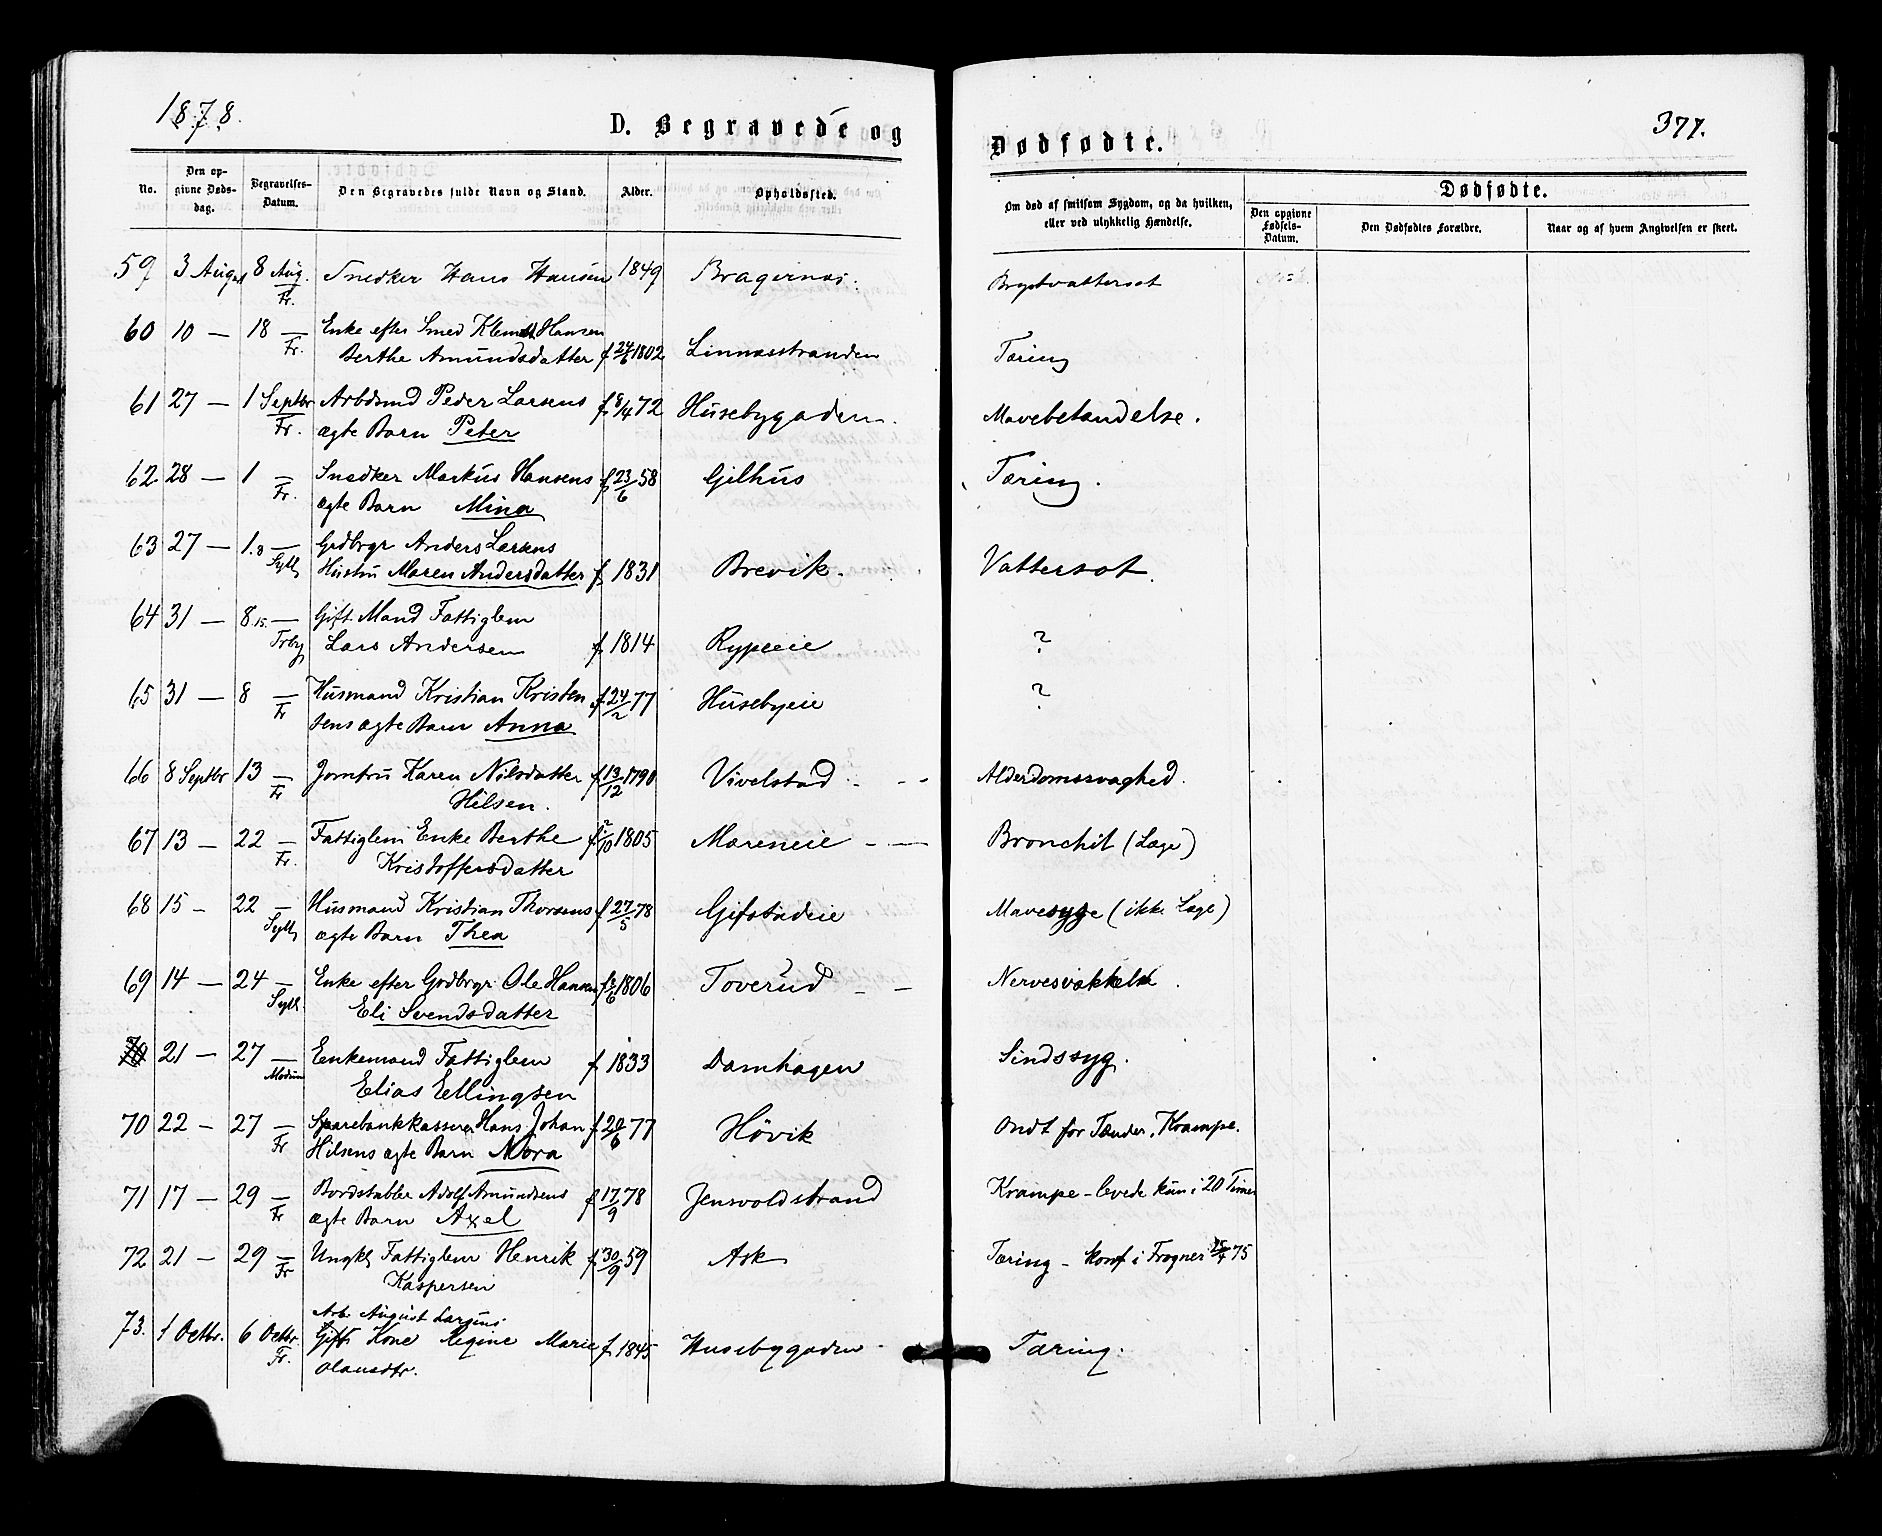 1878.
D. Begravede og
Dødfødte.
377.
No.
Den op-
givne Døds-
dag.
Begravelses-
Datum.
Den Begravedes fulde Navn og Stand.
Alder.
Opholdssted.
Om død af smitsom Sygdom, og da hvilken,
eller ved ulykkelig Hændelse.
Dødfødte.
Den opgivne
Fødsels-
Datum.
Den Dødfødtes Forældre.
Naar og af hvem Angivelsen er skeet.
59 3 August 8 Aug. Snedker Hans Hansen 1849 Bragernæs. Brystvattersot
Fr.
60 10 — 18 — Enke efter Smed Klemet Hansen
Fr. Berthe Amundsdatter f 24/6 1802 Linnæsstranden Tæring
61 27 — 1 Septbr Arbdsmd Peder Larsens f 8/4 72 Husebygaden. Mavebetændelse.
Fr. ægte Barn Peter
62 28 — 1 — Snedker Markus Hansens f 23/6 58 Gilhus Tæring.
Fr. ægte Barn Mina
63 27 — 1.8 — Grdbrgr Anders Larsens
Syll Hustru Maren Andersdatter f. 1831 Brevik. Vattersot.
64 31 — 8.15. — Gift Mand Fattiglem
Trby Lars Andersen f. 1814 Rypeeie ?
65 31 — 8 — Husmand Kristian Kristen f 24/2 77 Husebyeie ?
Fr sens ægte Barn Anna
66 8 Septbr 13 — Jomfru Karen Nilsdatter f 13/12 1790 Vivelstad - - - Alderdomssvaghed.
Fr Hilsen.
67 13 — 22 — Fattiglem Enke Berthe f 2/10 1805 Mæreneie - — Bronchit (Læge)
Fr. Kristoffersdatter
68 15 - 22 — Husmand Kristian Thorsens f 27/5 78 Gifstadeie Mavesyge (ikke Læge)
Syll ægte Barn Thea
69 14 — 24 — Enke efter Grdbrgr Ole Hansen 1806 Toverud - - Nervesvækkelse.
Syll Eli Svendsdatter
70 21 — 27 — Eenkemand Fattiglem f. 1833 Damhagen Sindssyg.
Modum Elias Ellingsen
70 22 - 27 — Sparebankkasserer Hans Johan f 20/6 77 Hövik Ondt for Tænder. Krampe.
Fr Hilsens ægte Barn Nora
71 17 — 29 — Bordstabler Adolf Amundsens f 17/9 78 Jensvoldstrand Krampe - levede kun i 20 Timer
Fr ægte Barn Axel
72 21 — 29 — Ungkl Fattiglem Henrik f 30/9 59 Ask Tæring - konf i Frogner 25/4 75
Fr Kaspersen
73. 1 Octbr. 6 Octbr. Arb. August Larsens
Fr. Gift Kone Regine Marie f. 1845 Husebygaden - Tæring.
Olausdtr.